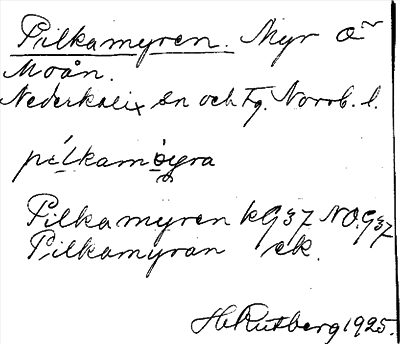 Pilkamyren. Myr O~
Moån.
Nederkalix sn och Fg. Norrb. l.
pílkamöyra
Pilkamyren kG37 NO.G37
Pilkamyran ek.
H. Rutberg 1925.